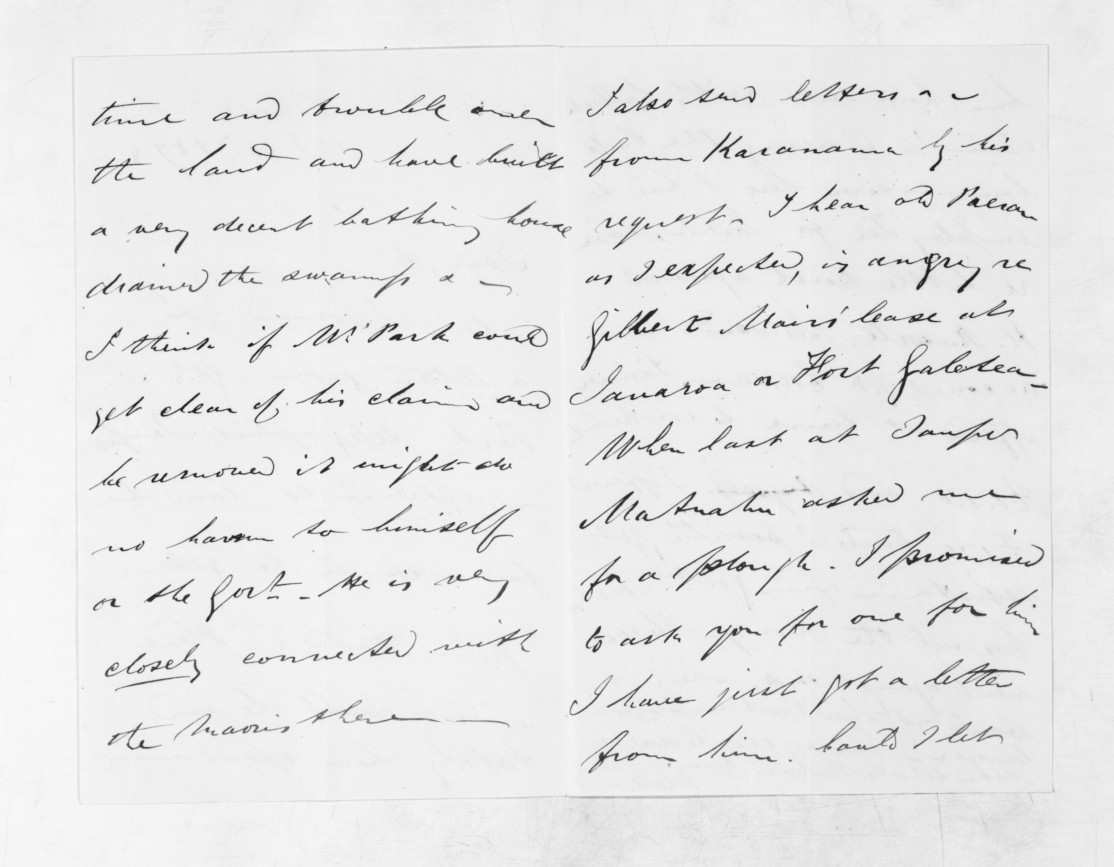 time and trouble over
the land and have built
a very decent bathing house
drained the swamps & –
I think if Mr Park could
get clear of his claim and
be removed it might do
no harm to himself
or the Govt – He is very
closely connected with
the Maoris there —
I also send letters
from Karanama by his
request – I hear old
as I expected, is angry re
Gilbert Mair's lease at
or Fort Galatea –
When last at
asked me
for a plough – I promised
to ask you for one for him
I have just got a letter
from him. Could I let